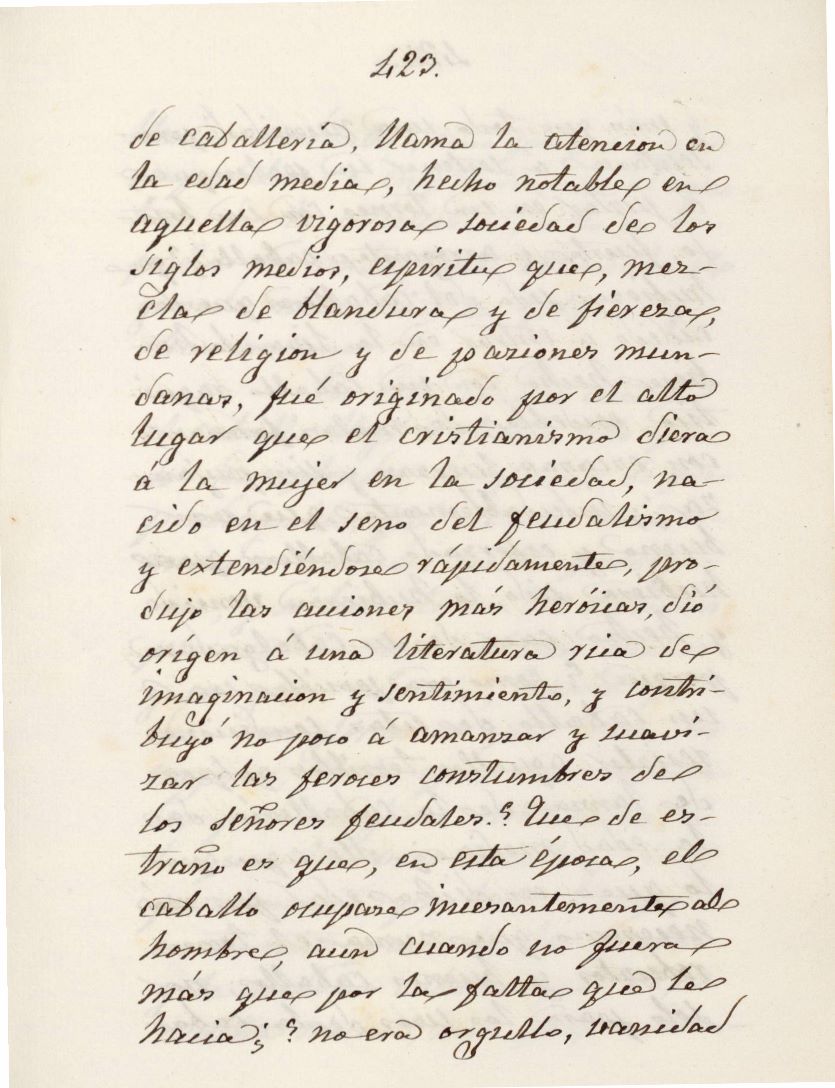 423.
de caballería, llama la atencion en
la edad media, hecho notable en
aquella vigorosa sociedad de los
siglos medios, espíritu que, mez-
cla de blandura y de fiereza,
de religion y de pasiones mun-
danas, fué originado por el alto
lugar que el cristianismo diera
á la mujer en la sociedad, na-
cido en el seno del feudalismo
y extendiéndose rápidamente, pro-
dujo las acciones más heróicas, dió
orígen á una literatura rica de
imaginacion y sentimiento, y contri-
buyó no poco á amanzar y suavi-
zar las feroces constumbres de
los señores feudales. ¿Que de es-
traño es que, en esta época, el
caballo ocupase incesantemente al
hombre, aun cuando no fuera
más que por la falta que le
hacia; ¿no era orgullo, vanidad